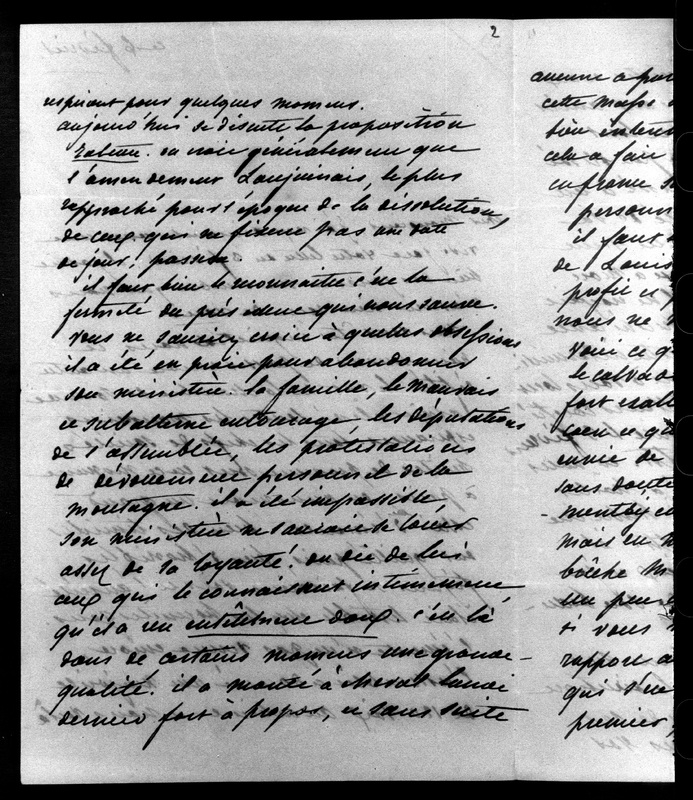 2
respirent pour quelques momens.
aujourd'hui se discute la proposition
Rateau. on croit généralement que
l'amendement Lanjuinais, le plus
rapproché pour l'époque de la dissolution,
de ceux qui ne fixent pas une date
de jour, passera
il faut bien le reconnaître c'est la
fermeté du président qui nous sauve.
vous ne sauriez croire à quelles obsessions
il a été en proie pour abandonner
son ministère. la famille, le mauvais
et subalterne entourage, les députations
de l'assemblée, les protestations
de dévouement personnel de la
montagne. il a été impassible,
son ministère ne saurait se louer
assez de sa loyauté. on dit de lui
ceux qui le connaissent intimement,
qu'il a un entêtement doux. c'est là
dans de certains momens une grande
qualité. il a monté à cheval lundi
dernier fort à propos, et sans suite
aucune a par
cette masse
bien
cela a fait
en france
personn
il faut
de Louis
profit
nous ne
voici ce q
le calvado
fort
caen ce qu
envie de
sans doute
mais en
bêche
un peu
si vous
rapport a
qui s'est
premier,